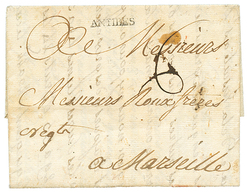 ANTIBES
A Messieurs
6
Messieurs Roux freres
Negts
a Marseille